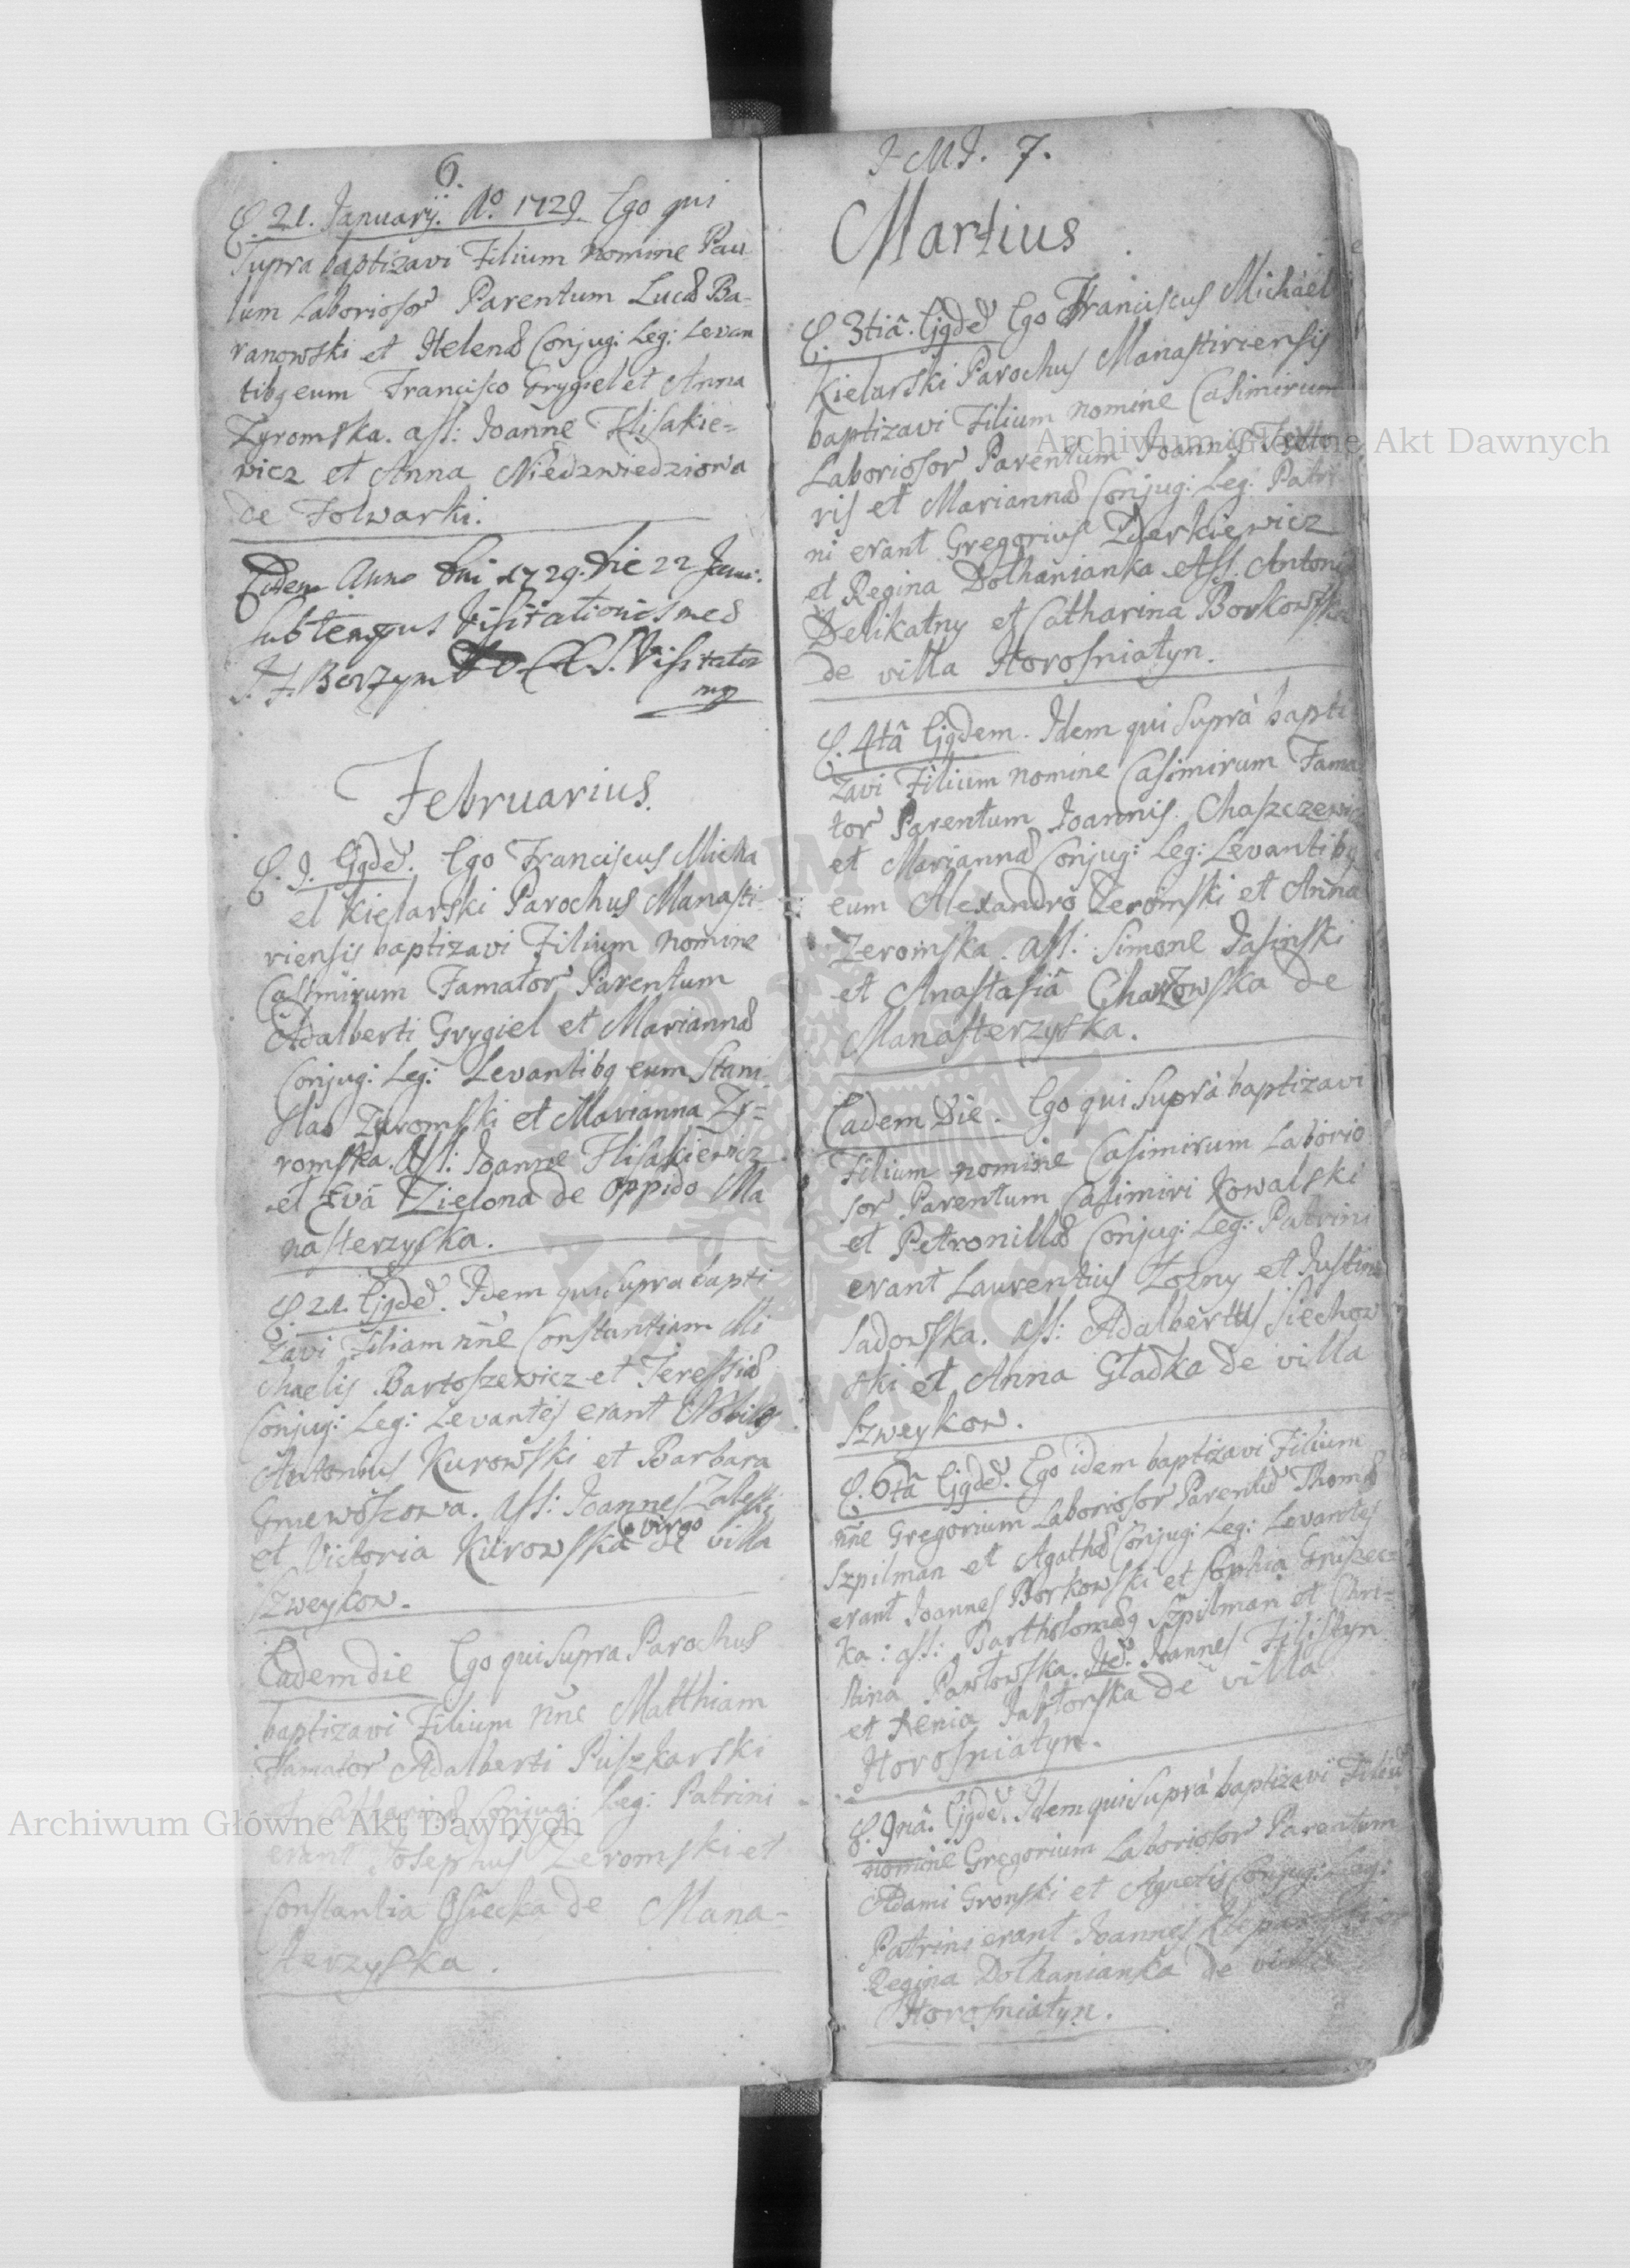 6.
E. 21. Januarij. Aº. 1729 Ego qui
supra baptizavi Filium nomine Pau
lum Laboriosor Parentum Lucæ Ba-
ranowski et Helenæ Conjug: Leg: Levan
tibq eum Francisco Grygiel et Anna
Zyromska. ass: Joanne Flisakie=
wicz et Anna Niedzwiedziowa
de Folwarki.
Eodem Anno Dni 1729. die 22 Janu.
sub tempus Visitationis meæ
Visitator
mp
Februarius.
E. 9. Ejqded. Ego Franciscus Micha
el Kielarski Parochus Manasti-
riensis baptizavi Filium nomine
Casimirum Famator Parentum
Adalberti Grygiel et Mariannæ
Conjug: Leg: Levantibq eum Stani
slao Zyromski et Marianna Zy=
romska. Ass: Joanne Flisakiewicz
et Evâ Zielona de Oppido Ma
nasterzyska.
E. 21. Ejqded. Idem qui supra bapti
zavi Filiam nñe Constantiam Mi
chaelis Bartoszewicz et Teressiæ
Conjug: Leg: Levantes erant Nobiles
Antonius Kurowski et Barbara
Gniewoszowa. ass: Joannes Zaleski
virgo
et Victoria Kurowska de villa
Szweykow.
Eadem die Ego qui supra Parochus
baptizavi Filium nñe Matthiam
Famator Adalberti Puszkarski
et Catharinæ Conjug: Leg: Patrini
erant Josephus Zeromski et
Constantia Osiecka de Mana=
sterzyska.
J. M. J. 7.
Martius
E. 3tiâ. Ejqded Ego Franciscus Michael
Kielarski Parochus Manastiriensis
baptizavi Filium nomine Casimirum
Laboriosor Parentum Joannis Texto
ris et Mariannæ Conjug: Leg: Patri
ni erant Gregorius Zderkiewicz
et Regina Dolhanianka Ass. Antoni
Delikatny et Catharina Borkowska
de villa Horosniatyn.
E. 4tâ Ejqdem. Idem qui suprà bapti
zavi Filium nomine Casimirum Fama
tor Parentum Joannis Chaszczewicz
et Mariannæ Conjug: Leg: Levantibq
eum Alexandro Zeromski et Anna
Zeromska. ass: Simone Jasinski
et Anastasiâ Charzowska de
Manasterzyska.
Eadem Die. Ego qui suprà baptizavi
Filium nomine Casimirum Laborio
sor Parentum Casimiri Kowalski
et Petronillæ Conjug: Leg: Patrini
erant Laurentius Łozny et Justina
Sadowska. ass: Adalbertus Siechow
ski et Anna Gładka de villa
Szweykow.
E. 6tâ Ejqded. Ego idem baptizavi Filium
nñe Gregorium Laboriosor Parentũ Thomæ
Szpilman et Agathæ Conjug: Leg: Levantes
erant Joannes Borkowski et Sophia Gruszecz
ka: ass: Bartholomæq Szpilman et Chri-
stina Pawłowska. Itẽ. Joannes Filistyn
et Xenia Jaktorska de villa
Horosniatyn.
E. 9nâ. Ejqded. Idem qui suprà baptizavi Filiũ
nomine Gregorium Laboriosor Parentum
Adami Gronski et Agnetis Conjug: Leg:
Patrini erant Joannes et
Regina Dolhanianka de villa
Horosniatyn.
Archiwum Główne Akt Dawnych
Archiwum Główne Akt Dawnych